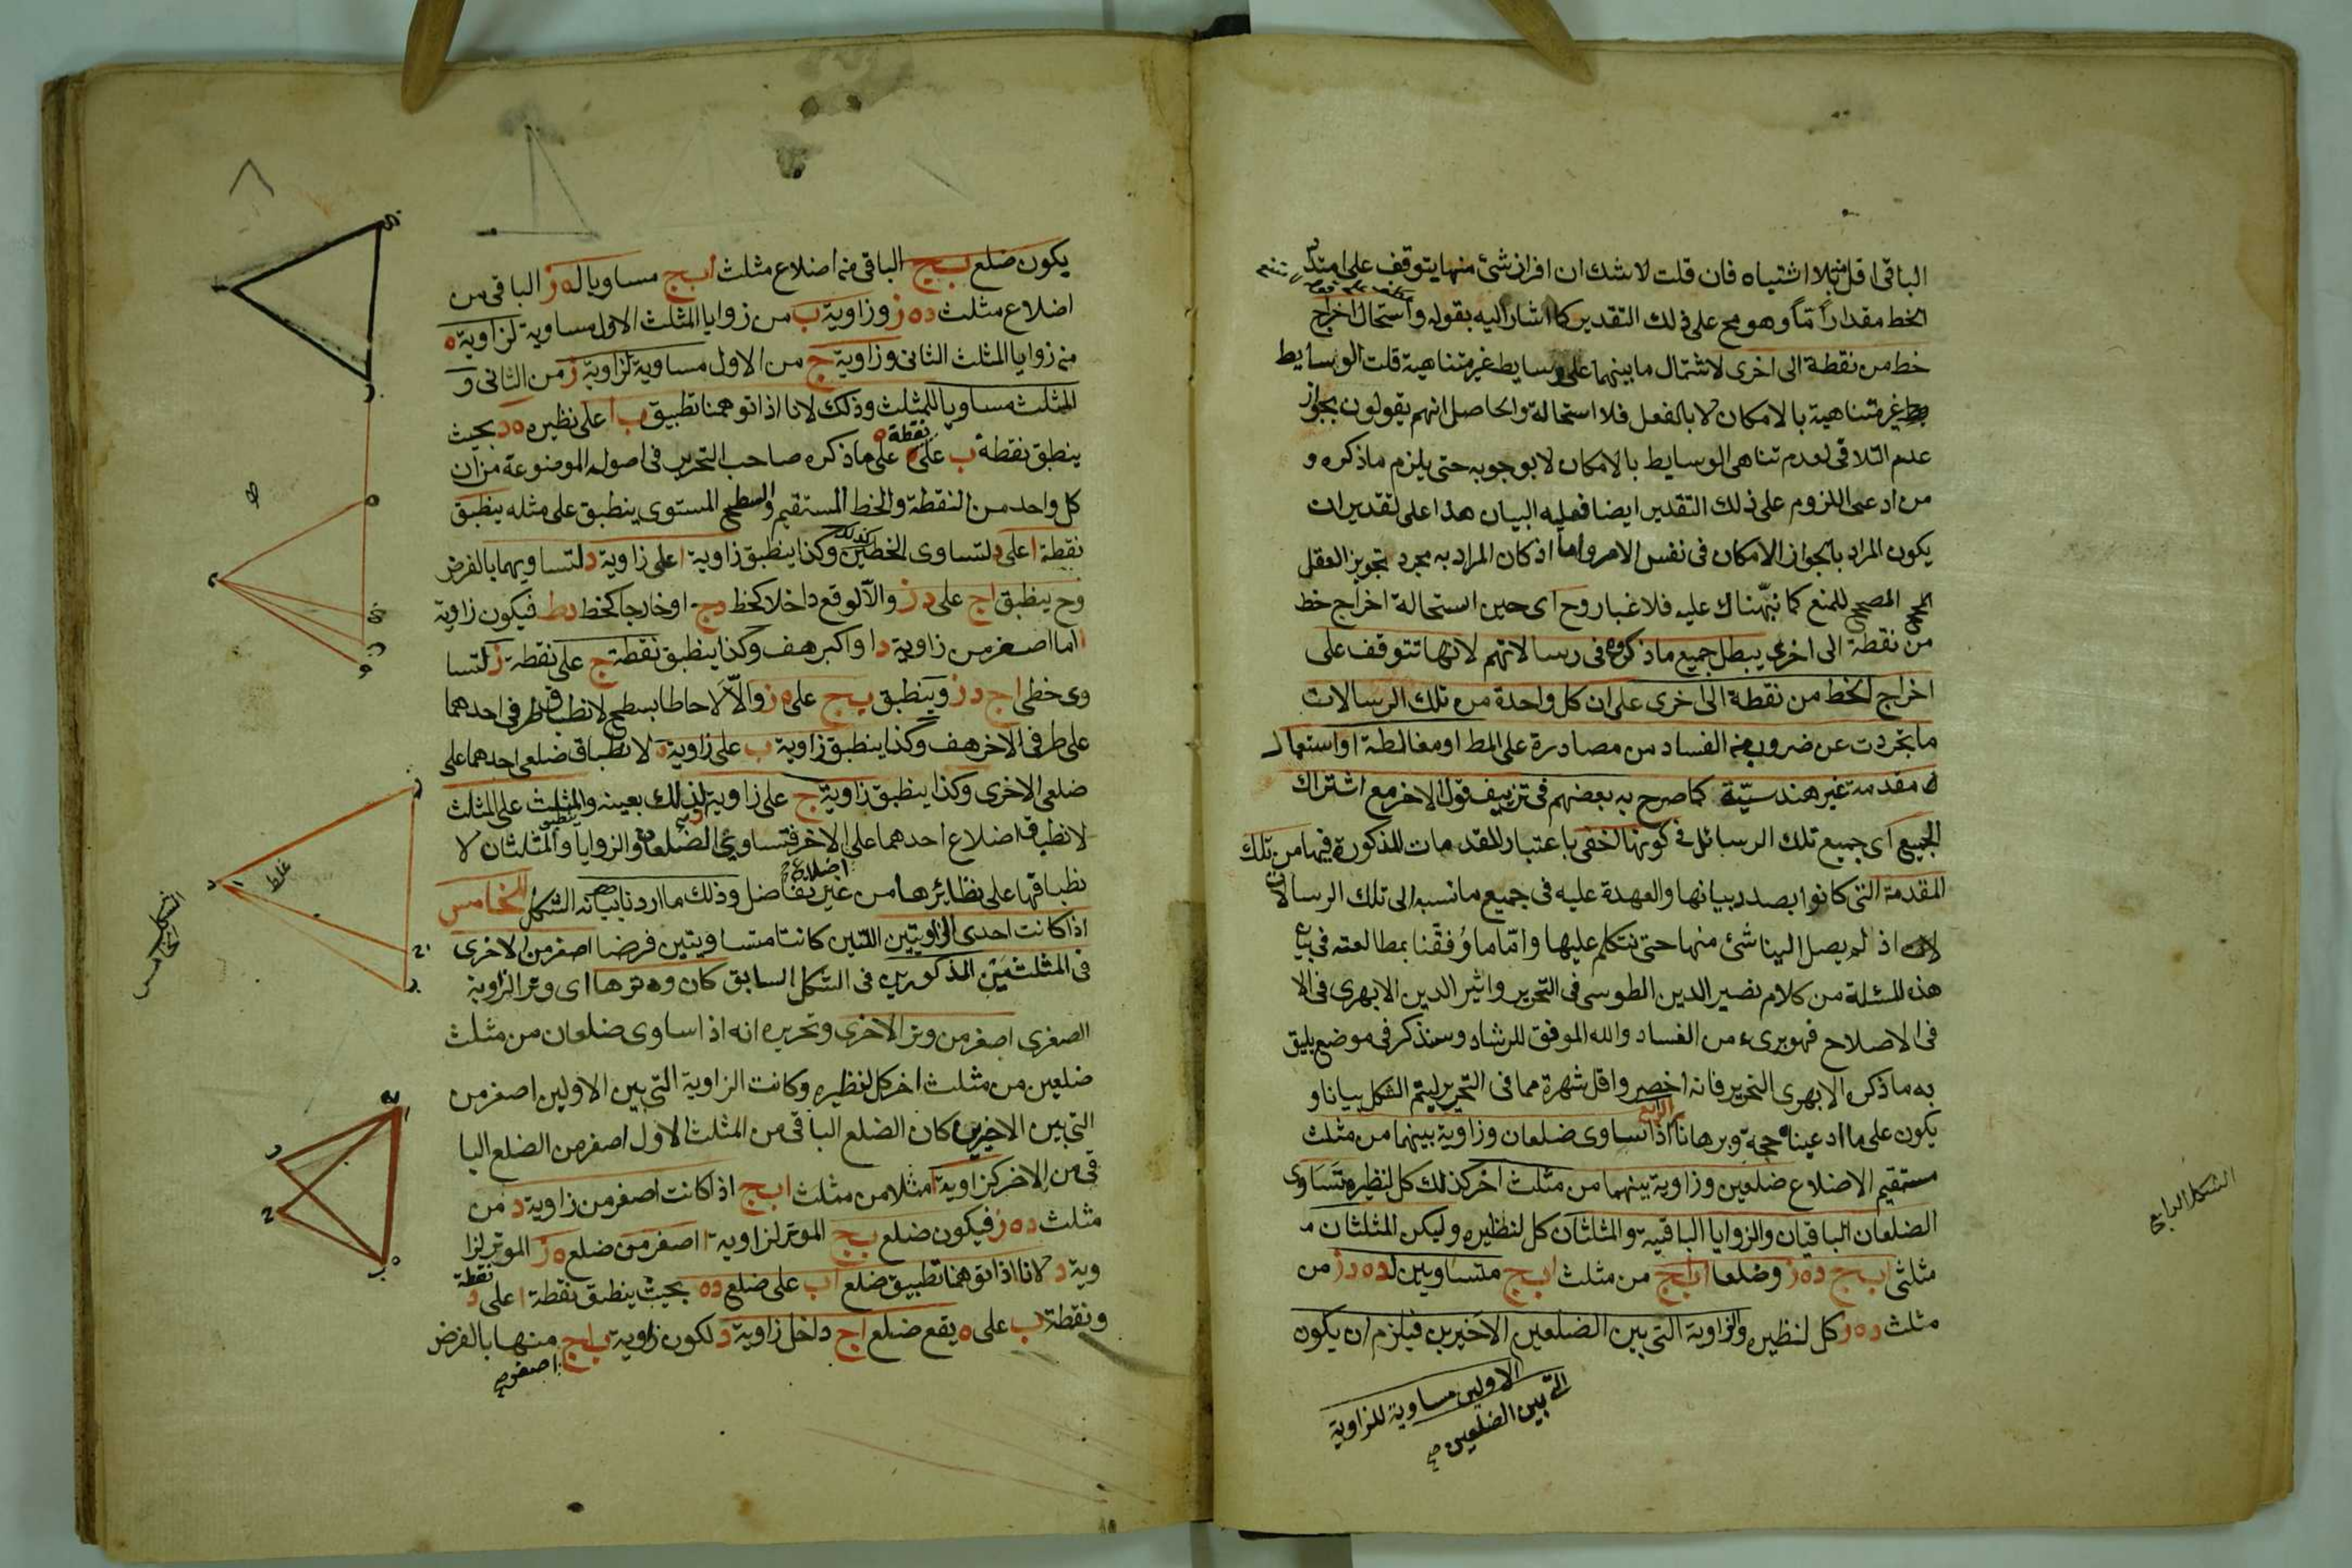 الباقى اقل منه بلا اشتباه فان قلت لاشك ان افراز شئ منها يتوقف على امتداد
الخط مقدارا ما وهو مح على ذلك التقدير كما اشار اليه بقوله واستحال اخراج
خط من نقطة الى اخرى لاشتمال ما بينهما على وسايط غير متناهية قلت الوسايط
غير متناهية بالامكان لا بالفعل فلا استحالة والحاصل انهم يقولون بجواز
عدم التلاقى لعدم تناهى الوسايط بالامكان لا بوجوبه حتى يلزم ماذكره و
من ادعى اللزوم على ذلك التقدير ايضا فعليه البيان هذا على تقدير ان
يكون المراد بالجواز الامكان فى نفس الامر واما اذ كان المراد به مجرد تجويز العقل
المصحح للمنع كما نبهناك عليه فلا غبار وح اى حين استحالة اخراج خط
من نقطة الى اخرى يبطل جميع ماذكروه فى رسالاتهم لانها تتوقف على
اخراج الخط من نقطة الى اخرى على ان كل واحدة من تلك الرسالات
ما تجردت عن ضروب من الفساد من مصادرة على المط او مغالطة او استعمال
مقدمة غير هندسيّة كما صرح به بعضهم فى تزييف قول الاخر مع اشتراك
الجميع اى جميع تلك الرسائل فى كونها اخفى باعتبار المقدمات المذكورة فيها من تلك
المقدمة التى كانوا بصدد بيانها والعهدة عليه فى جميع ما نسبه الى تلك الرسالات
اذ لم يصل الينا شئ منها حتى نتكلم عليها وامّا ما وُفقنا بمطالعته فى بيان
هذه المسئلة من كلام نصير الدين الطوسى فى التحرير واثير الدين الابهرى فى الا
فى الاصلاح فهو برىء من الفساد والله الموفق للرشاد وسنذكر فى موضع يليق
به ماذكره الابهرى التحرير فانه اخصر واقل شهرة مما فى التحرير ليتم الشكل بيانا و
يكون على ما ادعيناه حجة وبرهانا الرابع اذا تساوى ضلعان وزاوية بينهما من مثلث
مستقيم الاضلاع ضلعين وزاوية بينهما من مثلث اخر كذلك كل لنظيره تساوى
الضلعان الباقيان والزوايا الباقية والمثلثان كل لنظيره وليكن المثلثان
مثلثى ابج دهز وضلعا اباج من مثلث ابج متساويين لده دز من
مثلث دهز كل لنظيره والزاوية التى بين الضلعين الاخيرين فيلزم ان يكون
الاولين مساوية للزاوية
التى بين الضلعين صح
الشكل الرابع
يكون ضلع بج الباقى من اضلاع مثلث ابج مساويا له ز الباقى من
اضلاع مثلث دهز وزاوية ب من زوايا المثلث الاول مساوية لزاوية ه
من زوايا المثلث الثانى وزاوية ج من الاول مساوية لزاوية ز من الثانى و
المثلث مساويا للمثلث وذلك لانا اذا توهمنا تطبيق ب ا على نظيره ه د بحيث
ينطبق نقطة ب على نقطة ه على ماذكره صاحب التحرير فى اصوله الموضوعة من ان
كل واحد من النقطة والخط المستقيم والسطح المستوى ينطبق على مثله ينطبق
نقطة ا على د لتساوى الخطين وكذا ينطبق زاوية ا على زاوية د لتساويهما بالفرض
وح ينطبق اج على دز والاّ لوقع داخلا كخط دح او خارجا كخط دط فيكون زاوية
ا اما اصغر من زاوية د او اكبر هف وكذا ينطبق نقطة ج على نقطة ز لتسا
وى خطى اج دز وينطبق بج على ه ز والاّ لاحاطا بسطح لانطباق طرفى احدهما
على طرفى الاخر هف وكذا ينطبق زاوية ب على زاوية ه لانطباق ضلعى احدهما على
ضلعى الاخرى وكذا ينطبق زاوية ج على زاوية ز لذلك بعينه والمثلث على المثلث
لانطباق اضلاع احدهما على الاخر فتساوى الضلعان والزوايا والمثلثان لا
نطباقها على نظائرها من غير تفاضل وذلك ما اردنا بيانه الشكل الخامس
اذا كانت احدى الزاويتين اللتين كانتا متساويتين فرضا اصغر من الاخرى
فى المثلثين المذكورين فى الشكل السابق كان وترها اى وتر الزاوية
الصغرى اصغر من وتر الاخرى وتحريره انه اذا ساوى ضلعان من مثلث
ضلعين من مثلث اخر كل لنظيره وكانت الزاوية التى بين الاولين اصغر من
التى بين الاخيرين كان الضلع الباقى من المثلث الاول اصغر من الضلع البا
قى من الاخر كزاوية ا مثلا من مثلث ابج اذا كانت اصغر من زاوية د من
مثلث دهز فيكون ضلع بج الموتر لزاوية ا اصغر من ضلع ه ز الموتر لزا
وية د لانا اذا توهمنا تطبيق ضلع اب على ضلع ده بحيث ينطبق نقطة ا على نقطة د
ونقطة ب على ه يقع ضلع اج داخل زاوية د لكون زاوية باج منها بالفرض
اصغر صح
غلط
الشكل الخامس